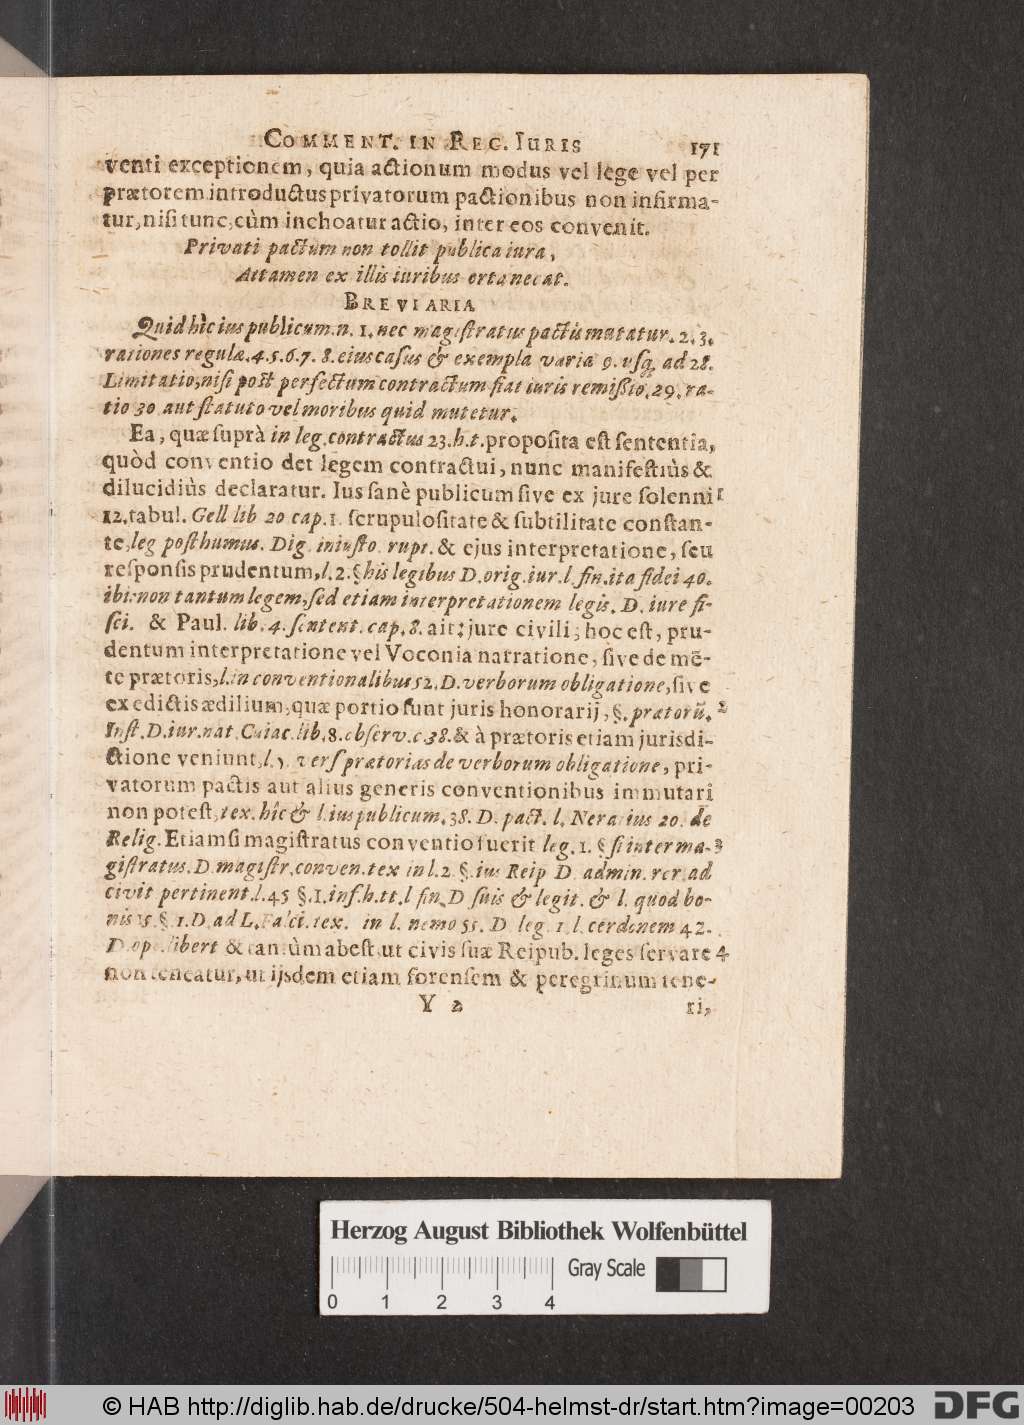 COMMENT. IN REG. IURIS 171
venti exceptionem, quia actionum modus vel lege vel per
prætorem introductus privatorum pactionibus non infirma-
tur, nisi tunc, cùm inchoatur actio, inter eos convenit.
Privati pactum non tollit publica iura,
Attamen ex illis iuribus orta necat.
BREVIARIA
Quid hîc ius publicum. n. 1. nec magistratus pactis mutatur. 2. 3.
rationes regulæ. 4. 5. 6. 7. 8. eius casus & exempla varia 9. usq; ad 28.
Limitatio, nisi post perfectum contractum fiat iuris remißio. 29. ra-
tio 30 aut statuto vel moribus quid mutetur.
Ea, quæ suprà in leg. contractus 23. h. t. proposita est sententia,
quòd conventio det legem contractui, nunc manifestiùs &
dilucidiùs declaratur. Ius sanè publicum sive ex jure solenni 1
12. tabul. Gell lib 20 cap. 1. scrupulositate & subtilitate constan-
te, leg posthumus. Dig. iniusto. rupt. & ejus interpretatione, seu
responsis prudentum, l. 2. § his legibus D. orig. iur. l. fin. ita fidei 40.
ibi: non tantum legem, sed etiam interpretationem legis. D. iure fi-
sci. & Paul. lib. 4. sentent. cap. 8. ait: jure civili, hoc est, pru-
dentum interpretatione vel Voconia narratione, sive de mẽ-
te prætoris, l. in conventionalibus 52. D. verborum obligatione, sive
ex edictis ædilium, quæ portio sunt juris honorarij, §. prætorũ. 2
Inst. D. iur. nat. Cuiac. lib. 8. observ. c. 38. & à prætoris etiam jurisdi-
ctione veniunt, l. 5. vers prætorias de verborum obligatione, pri-
vatorum pactis aut alius generis conventionibus immutari
non potest, tex. hîc & l. ius publicum. 38. D. pact. l. Neratius 20. de
Relig. Etiamsi magistratus conventio fuerit leg. 1. § si inter ma- 3
gistratus. D. magistr. conven. tex in l. 2 §. ius Reip D. admin. rer. ad
civit pertinent. l. 45 §. 1. inf. h. tt. l fin. D suis & legit. & l. quod bo-
nis 15. §. 1. D. ad L. Falci. tex. in l. nemo 55. D. leg. 1. l. cerdonem 42.
D. op. libert & tantùm abest, ut civis suæ Reipub. leges servare 4
non teneatur, ut ijsdem etiam forensem & peregrinum tene-
Y 2 ri,
Herzog August Bibliothek Wolfenbüttel
Gray Scale
0 1 2 3 4
© HAB http://diglib.hab.de/drucke/504-helmst-dr/start.htm?image=00203 DFG